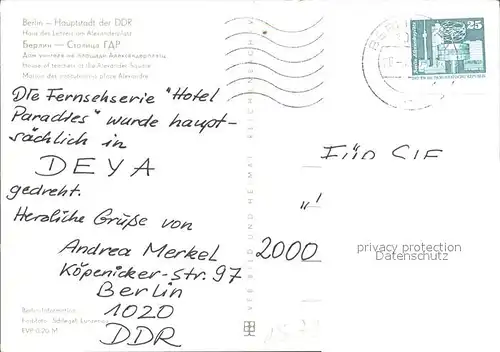 Berlin – Hauptstadt der DDR
Haus des Lehrers am Alexanderplatz
Берлин — Столица ГДР
Дом учителя на площади Александерплатц
House of teachers at the Alexander Square
Maison des instituteurs place Alexandre
Die Fernsehserie "Hotel
Paradies" wurde haupt-
sächlich in
DEYA
gedreht.
Herzliche Grüße von
Andrea Merkel
Köpenicker-Str. 97
Berlin
1020
DDR
Berlin-Information
EVP 0,20 M
VERBILD UND HEIMAT REICHENBACH
BERLIN
25
FÜR SIE
"!
2000
privacy protection
Datenschutz